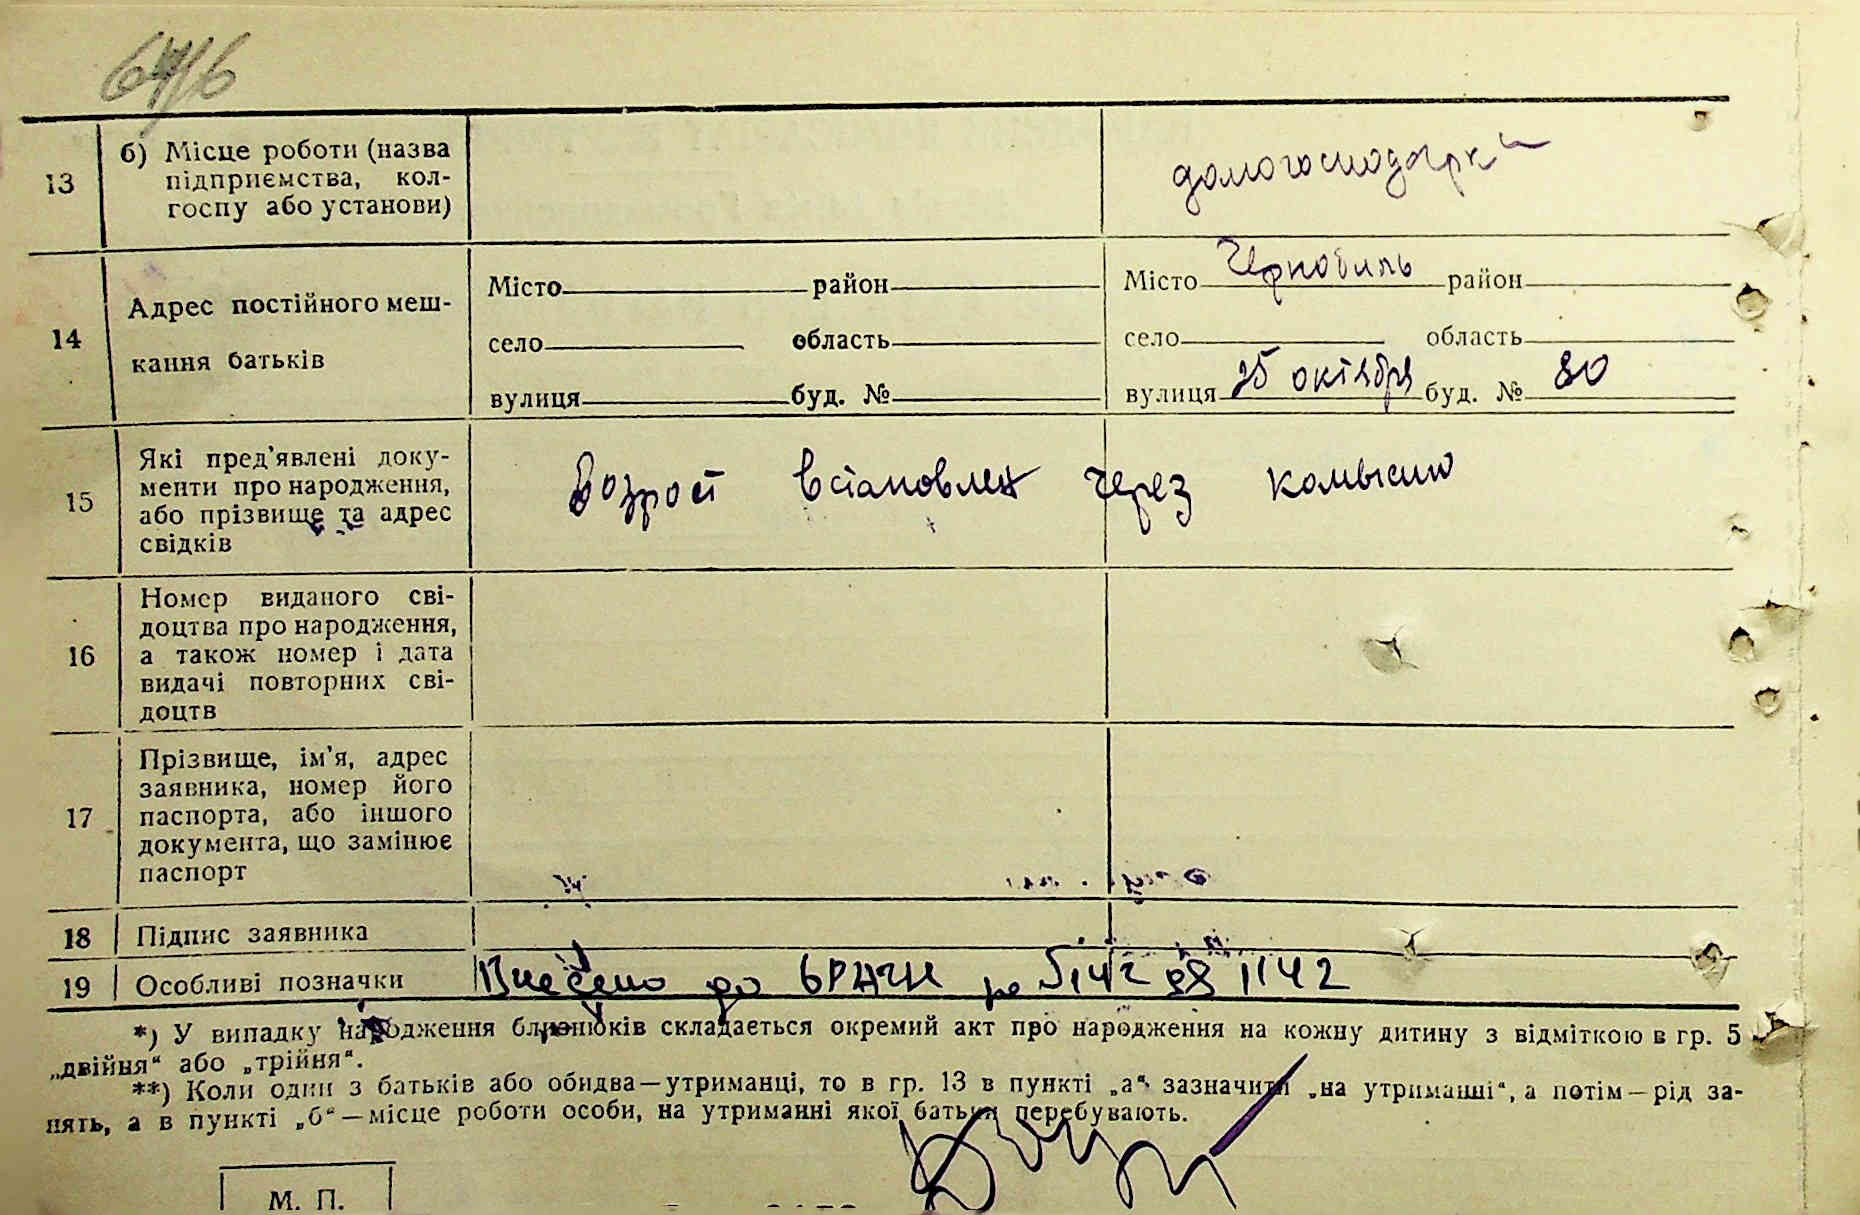 13 б) Місце роботи (назва
підприємства, кол-
госпу або установи)
домогосподарка
14 Адрес постійного меш-
кання батьків
Місто район
село область
вулиця буд. №
Місто Чернобиль район
село область
вулиця 25 октября буд. № 80
15 Які пред’явлені доку-
менти про народження,
або прізвище та адрес
свідків
Возрост встановлен через комысию
16 Номер виданого сві-
доцтва про народження,
а також номер і дата
видачі повторних сві-
доцтв
17 Прізвище, ім’я, адрес
заявника, номер його
паспорта, або іншого
документа, що замінює
паспорт
18 Підпис заявника
19 Особливі позначки Внесено до
*) У випадку народження близнюків складається окремий акт про народження на кожну дитину з відміткою в гр. 5
„двійня“ або „трійня“.
**) Коли один з батьків або обидва—утриманці, то в гр. 13 в пункті „а“ зазначити „на утриманні“, а потім—рід за-
нять, а в пункті „б“—місце роботи особи, на утриманні якої батьки перебувають.
М. П.